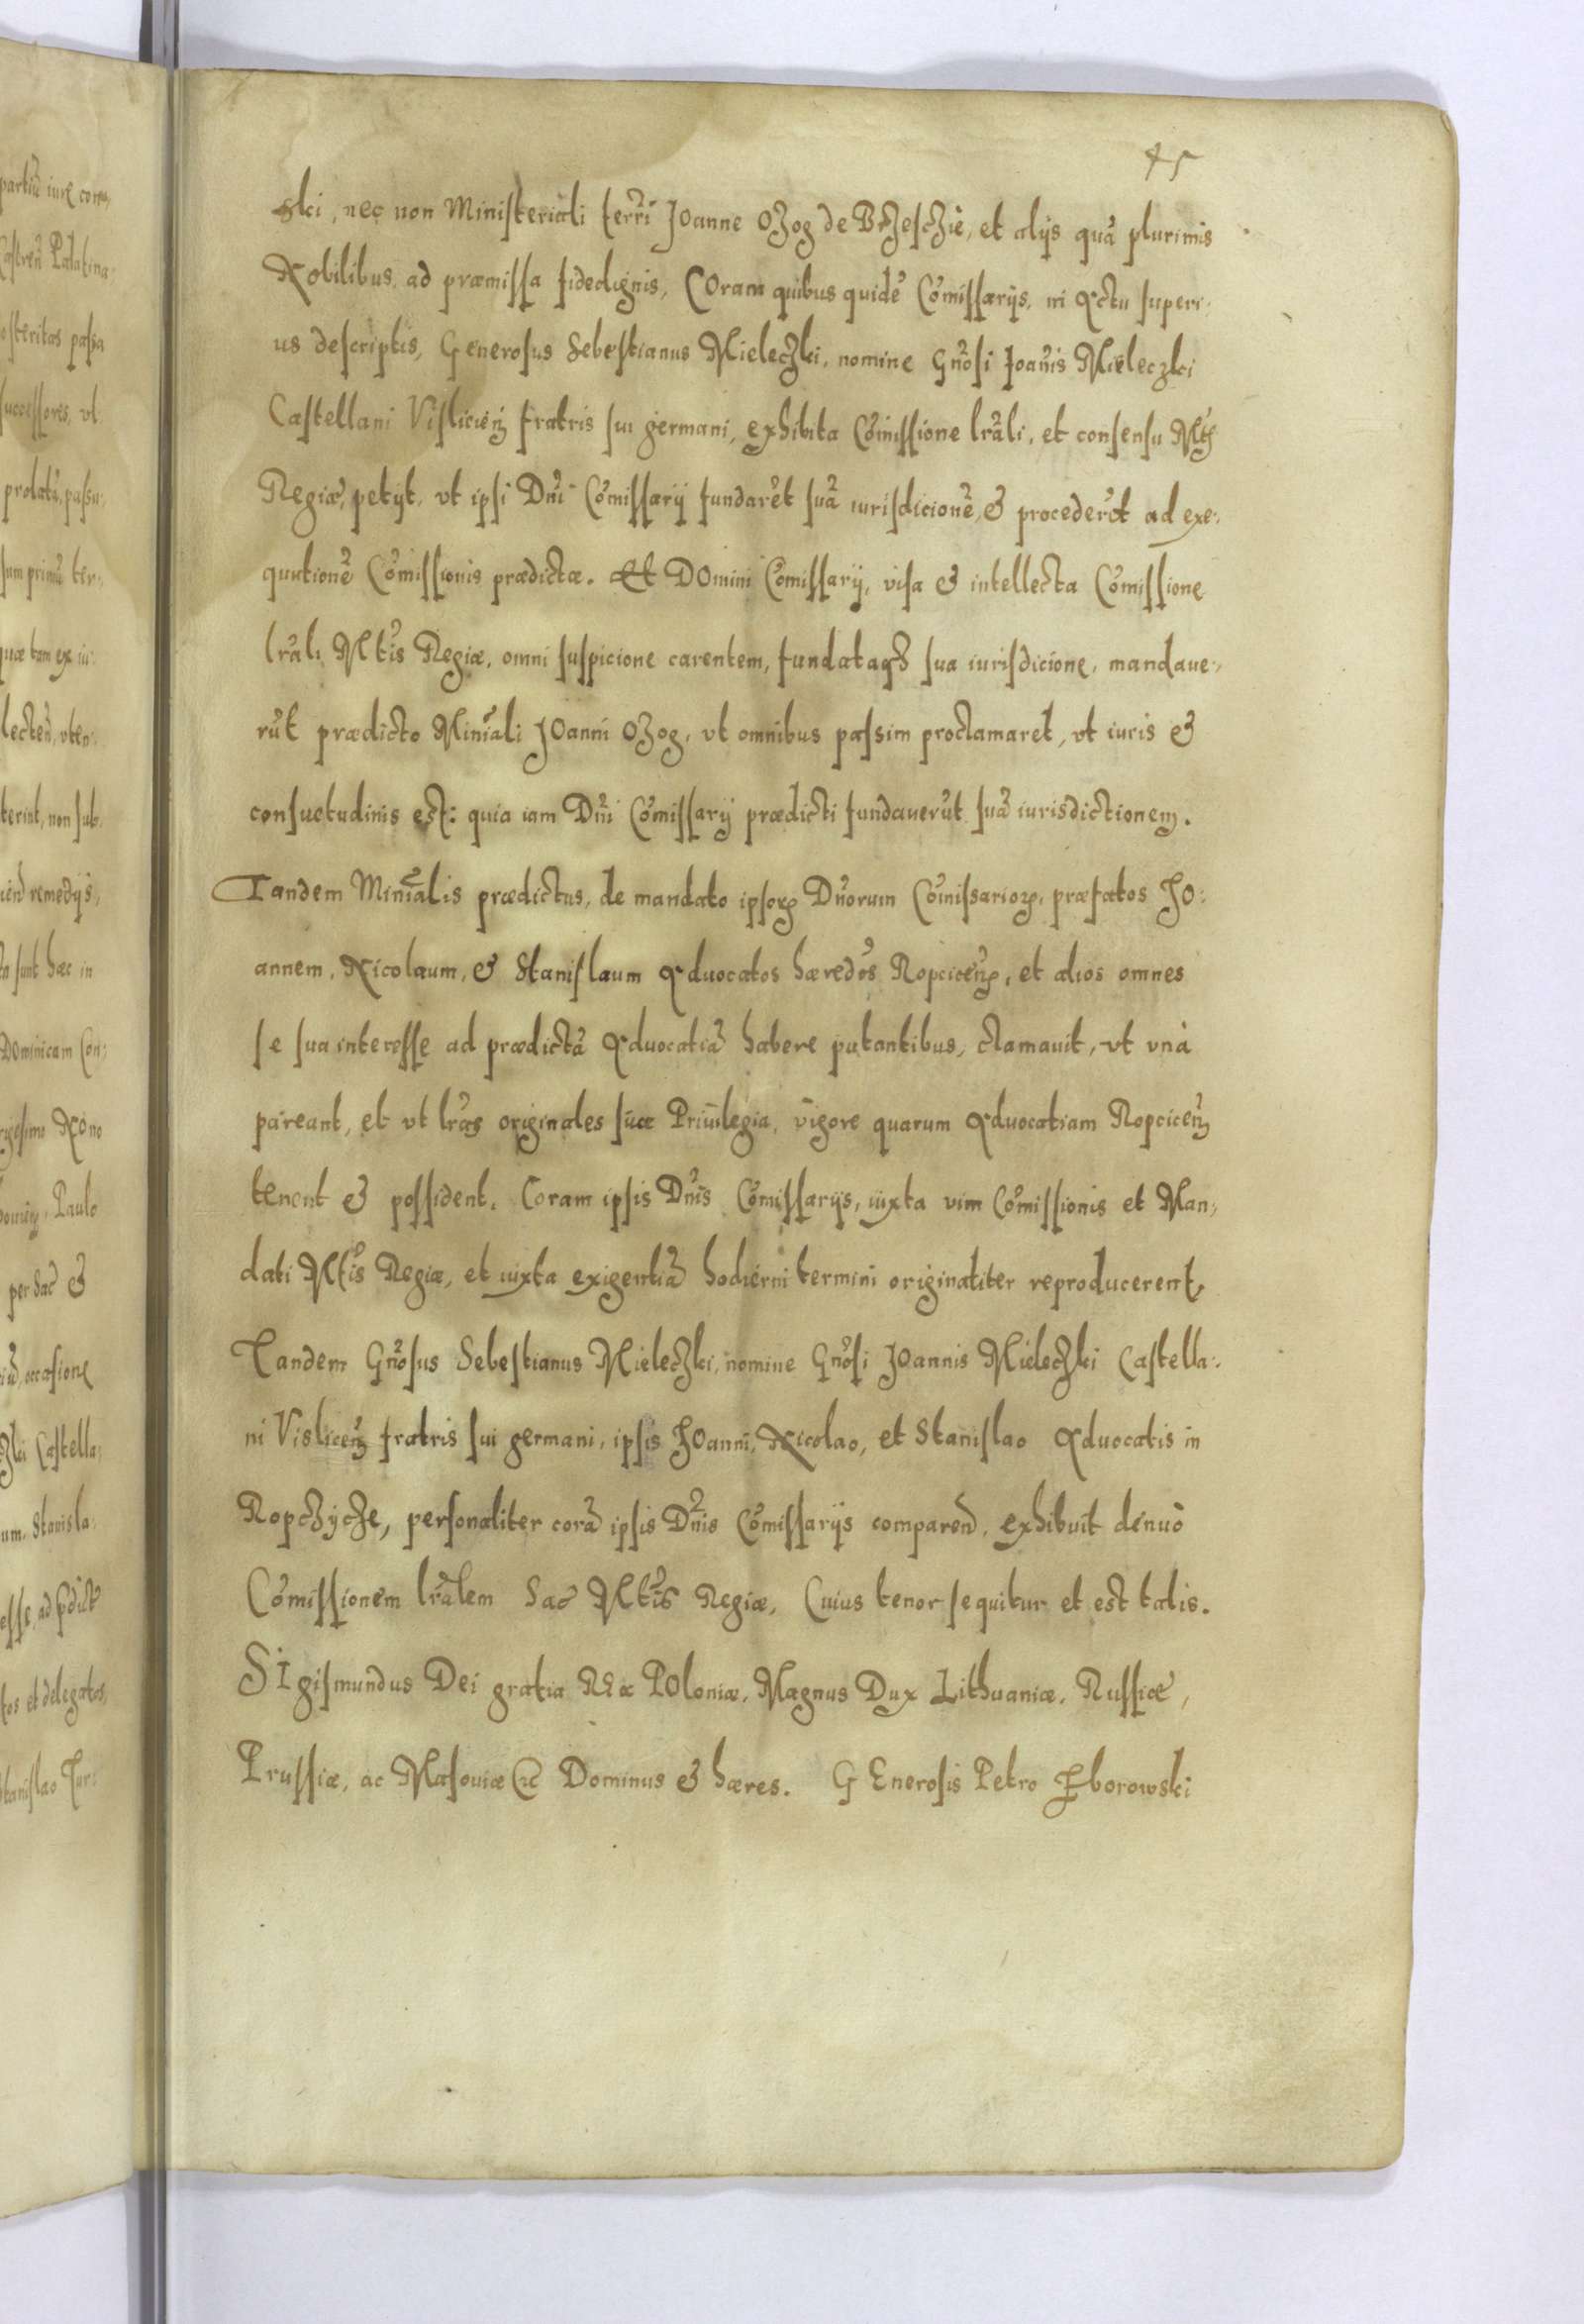 45
ski, nec non Ministeriali terrī Joanne Ozog de Brzesczie, et alijs quā plurimis
Nobilibus, ad præmissa fidedignis, Coram quibus quidē Cōmissarijs, in Actu superi:
us descriptis, Generosus Sebestianus Mieleczki, nomine Gnōsi Joānis Mieleczki
Castellani Visliciēn fratris sui germani, exhibita Cōmissione lrāli, et consensu Mtis
Regiæ, petijt, vt ipsi Dnī Cōmissarij fundarēt suā iurisdicionē, & procederēt ad exe:
qūutionē Cōmissionis prædictæ. Et Domini Cōmissarij, visa & intellecta Cōmissione
lrāli Mtīs Regiæ, omni suspicione carentem, fundataqȝ sua iurisdicione, mandaue:
rūt prædicto Miniāli Joanni Ozog, vt omnibus passim proclamaret, vt iuris &
consuetudinis est: quia iam Dnī Cōmissarij prædicti fundauerūt suā iurisdictionem.
Tandem Miniālis prædictus, de mandato ipsoꝝ Dnōrum Cōmissarioꝝ, præfatos Jo:
annem, Nicolaum, & Stanislaum Aduocatos hæredēs Ropciceñ, et alios omnes
se sua interesse ad prædictā Aduocatiā habere putantibus, clamauit, vt vnà
pareant, et vt lrās originales suæ Priuilegia, vigore quarum Aduocatiam Ropciceñ
tenent & possident. Coram ipsis Dnīs Cōmissarijs, iuxta vim Cōmissionis et Man:
dati Mtīs Regiæ, et iuxta exigentiā hodierni termini originaliter reproducerent.
Tandem Gnōsus Sebestianus Mieleczki, nomine Gnōsi Joannis Mieleczki Castella:
ni Visliceñ fratris sui germani, ipsis Joanni, Nicolao, et Stanislao Aduocatis in
Ropczycze, personaliter corā ipsis Dnīs Cōmissarijs compareñ, exhibuit denuò
Cōmissionem lrālem Sac Mtīs Regiæ, Cuius tenor sequitur et est talis.
SIgismundus Dei gratia REx POloniæ, Magnus Dux Lithuaniæ, Russiæ,
Prussiæ, ac Masouiæ &c Dominus & hæres. GEnerosis Petro Zborowski